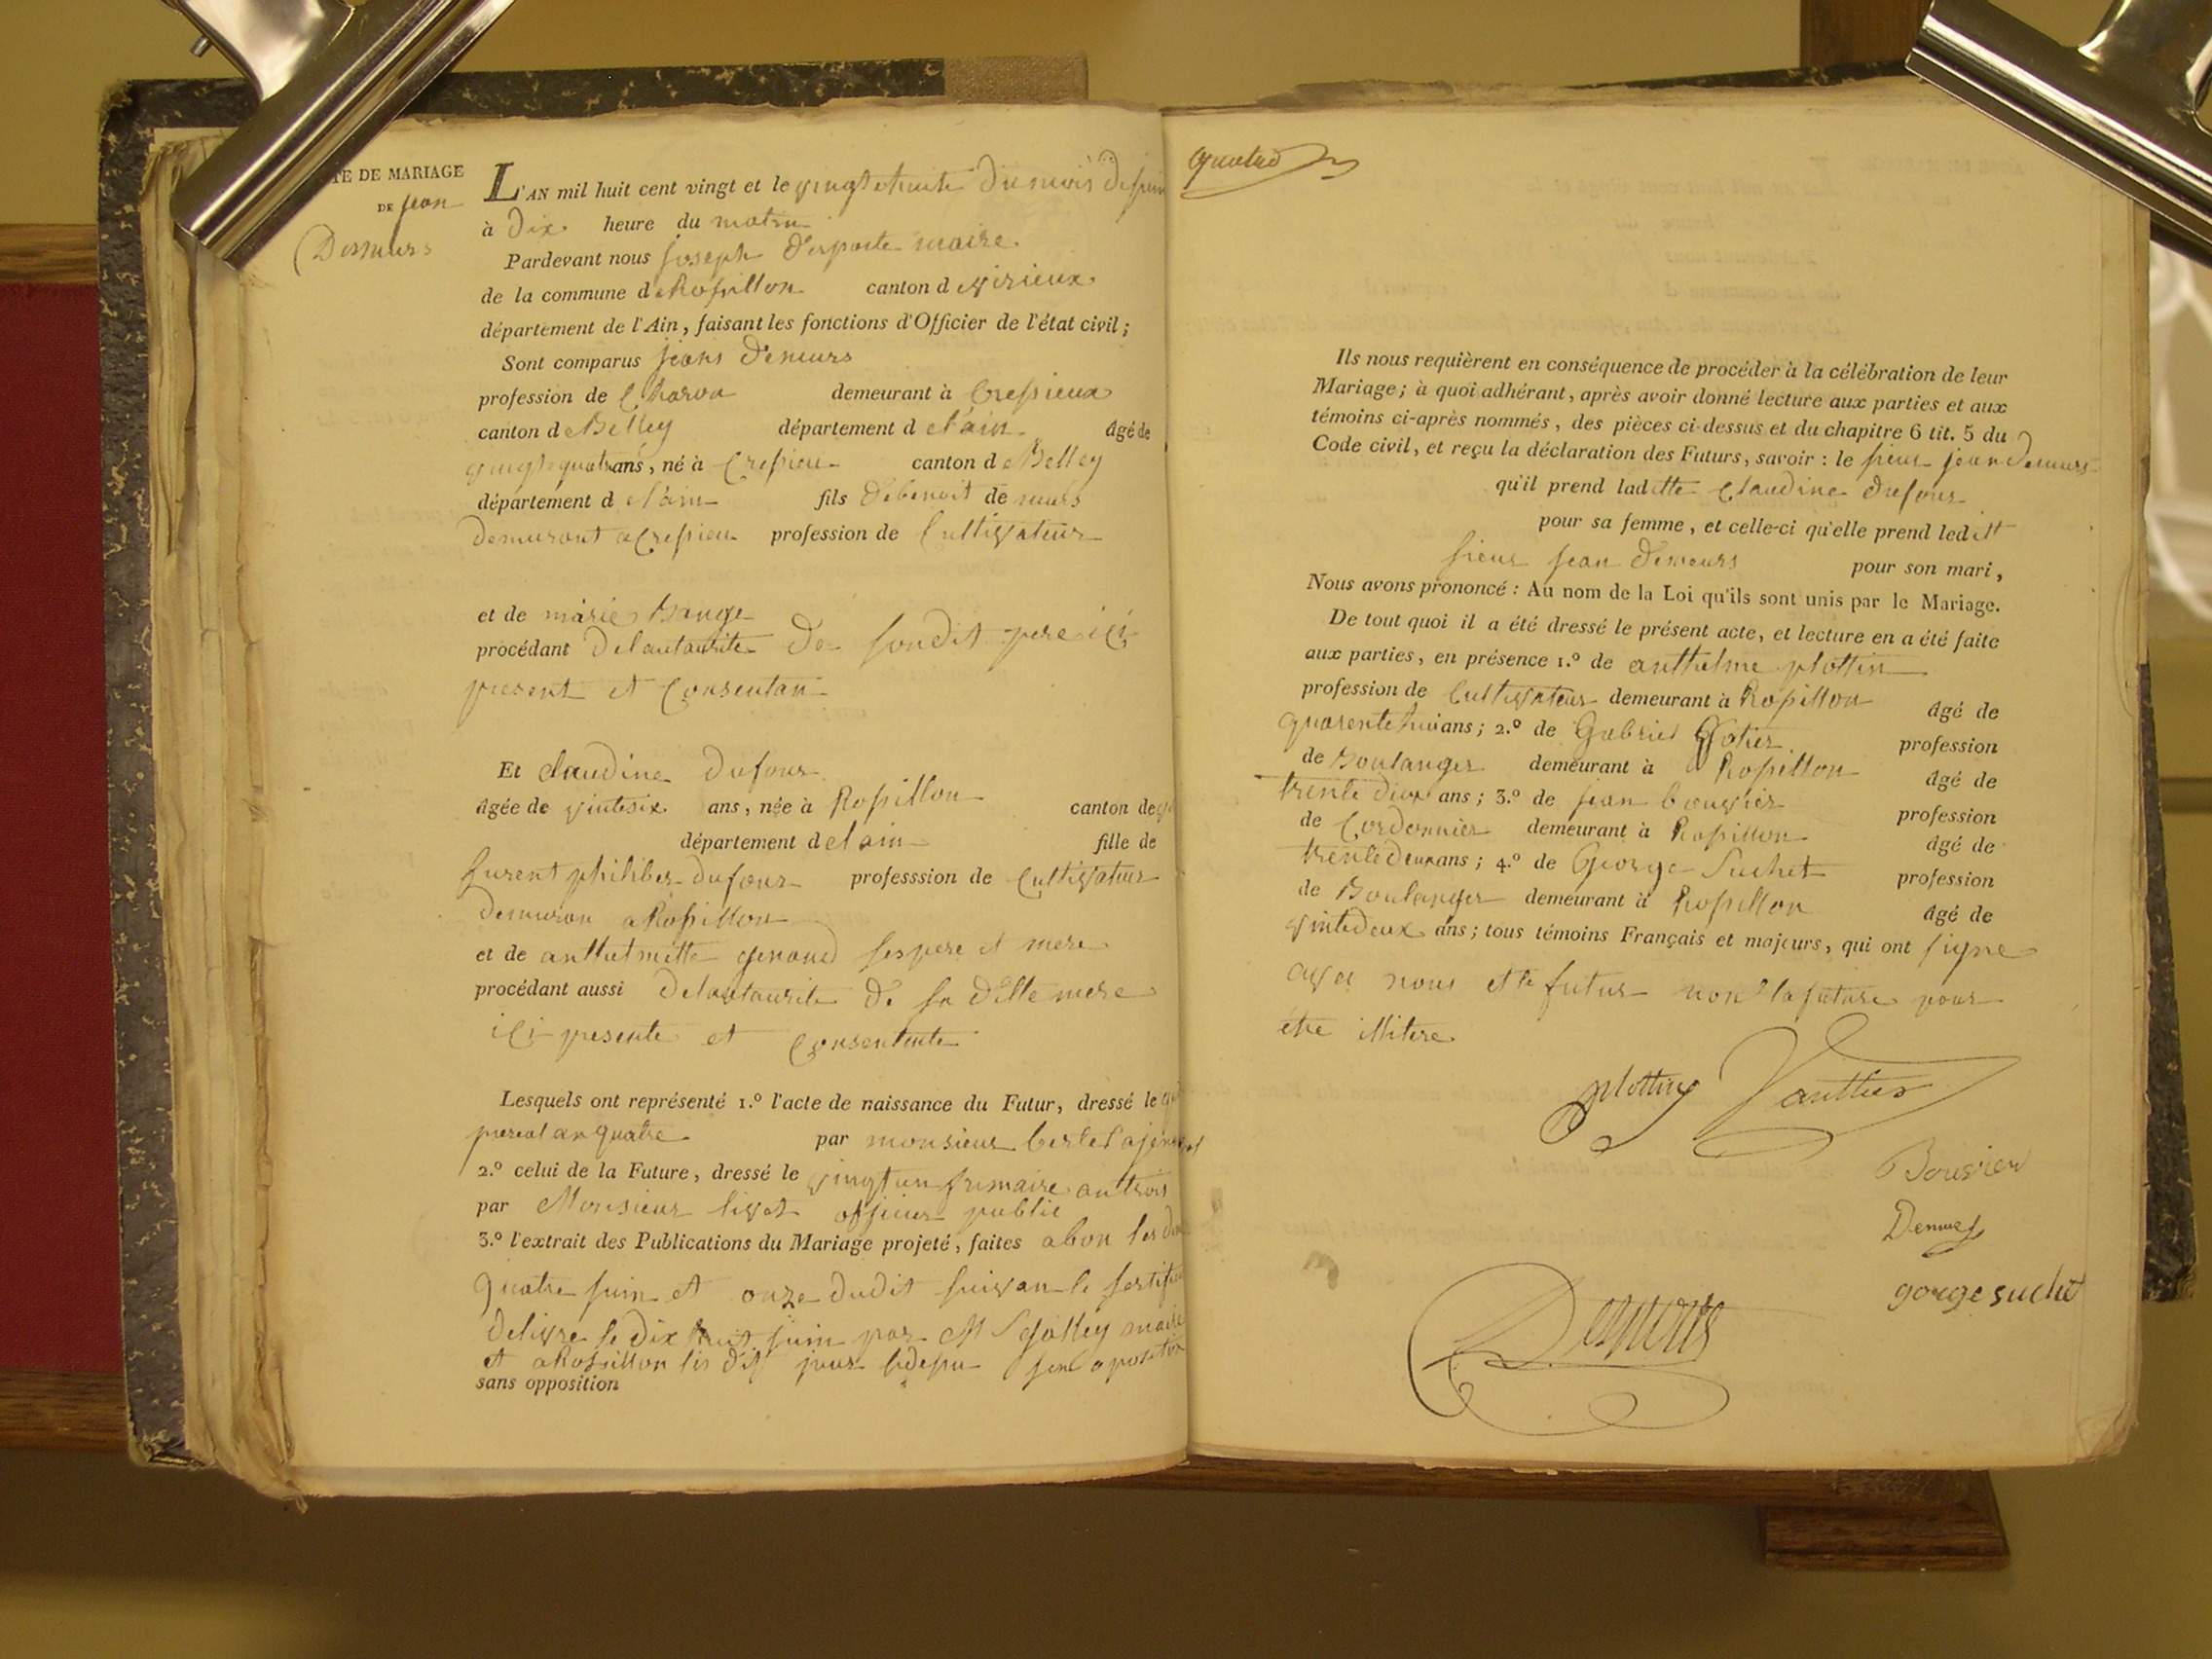 TE DE MARIAGE
DE jean
Demeurs
L'AN mil huit cent vingt et le vingtehuite du mois de juin
à dix heure du matin
Pardevant nous joseph maire
de la commune de Rossillon canton de virieux
département de l'Ain, faisant les fonctions d'Officier de l'état civil;
Sont comparus jean demeurs
profession de Charon demeurant à Cressieux
canton de Belley département d el'ain âgé de
vingtquatrans, né à Cressieu canton de Belley
département d el'ain fils debenoit de meurs
demurant a Cressieu profession de Cultivateur
et de marie Bauge
procédant delautaurite de sondit pere ici
present et Consentan
Et claudine dufour
âgée de vintesix ans, née à Rossillon canton de
département d el ain fille de
furent philiber dufour professsion de Cultivateur
demuran a Rossillon
et de anthelmette genoud ses pere et mere
procédant aussi delautaurite de sa ditte mere
ici presente et Consentente
Lesquels ont représenté 1.º l'acte de naissance du Futur, dressé le
prereal an quatre par monsieur
2.º celui de la Future, dressé le vingt un frimaire an trois
par Monsieur livet officier public
3.º l'extrait des Publications du Mariage projeté, faites abon les
quatre juin et onze dudit suivan le sertifica
delivre le dix huit juin par M maire
et a Rossillon les dit jour sen oposition
sans opposition
Ils nous requièrent en conséquence de procéder à la célébration de leur
Mariage; à quoi adhérant, après avoir donné lecture aux parties et aux
témoins ci-après nommés, des pièces ci-dessus et du chapitre 6 tit. 5 du
Code civil, et reçu la déclaration des Futurs, savoir : le sieur jean demeurs
qu'il prend laditte claudine dufour
pour sa femme, et celle-ci qu'elle prend leditt
sieur jean demeurs pour son mari,
Nous avons prononcé : Au nom de la Loi qu'ils sont unis par le Mariage.
De tout quoi il a été dressé le présent acte, et lecture en a été faite
aux parties, en présence 1.º de anthelme plottin
profession de Cultivateur demeurant à Rossillon âgé de
quarentehuians; 2.º de Gabriel Gotier profession
de Boulanger demeurant à Rossillon âgé de
trente deux ans; 3.º de jean bouvier profession
de Cordonnier demeurant à Rossillon âgé de
trentedeuxans; 4.º de George Suchet profession
de Boulanger demeurant à Rossillon âgé de
vintedeux ans; tous témoins Français et majeurs, qui ont signe
avec nous et le futur non la future pour
être illitere
plottin Gauthier
Bouvier
Demeurs
gorge suchet